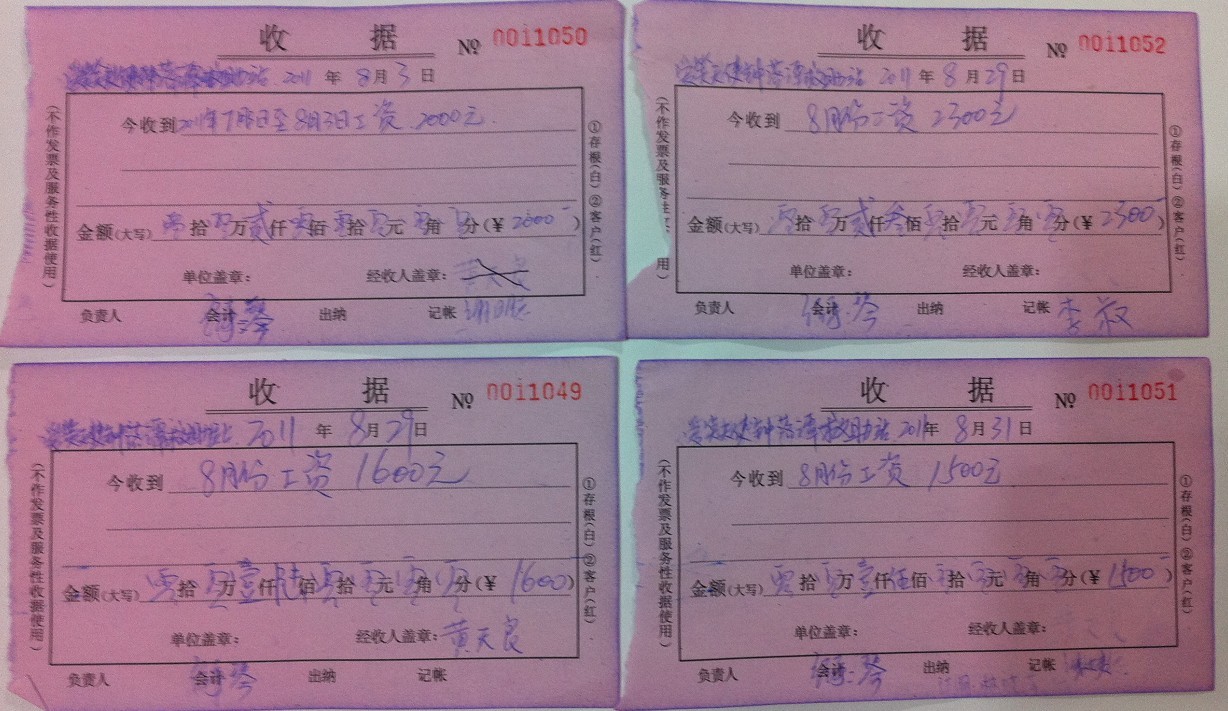 收 据 № 0011050
2011 年 8 月 3 日
今收到 2011年7月 日至8月3日工资 2000元.
金额(大写) 零拾零万贰仟零佰零拾零元零角零分(￥2000)
单位盖章: 经收人盖章:
负责人 会计 出纳 记帐
(不作发票及服务性收据使用)
①存根(白)②客户(红).
收 据 № 0011052
2011 年 8 月 29 日
今收到 8月份工资 2300元
金额(大写) 零拾零万贰仟叁佰零拾零元零角零分(￥2300)
单位盖章: 经收人盖章:
负责人 会计 出纳 记帐 李
(不作发票及服务性 用)
①存根(白)②客户(红).
收 据 № 0011049
2011 年 8 月 29 日
今收到 8月份工资 1600元
金额(大写) 零拾零万壹仟陆佰零拾零元零角零分(￥1600)
单位盖章: 经收人盖章: 黄天良
负责人 会计 出纳 记帐
(不作发票及服务性收据使用)
①存根(白)②客户(红).
收 据 № 0011051
2011年 8 月 31 日
今收到 8月份工资 1500元
金额(大写) 零拾零万壹仟伍佰零拾零元零角零分(￥1500)
单位盖章: 经收人盖章:
负责人 会计 出纳 记帐
(不作发票及服务性收据使用)
①存根(白)②客户(红).